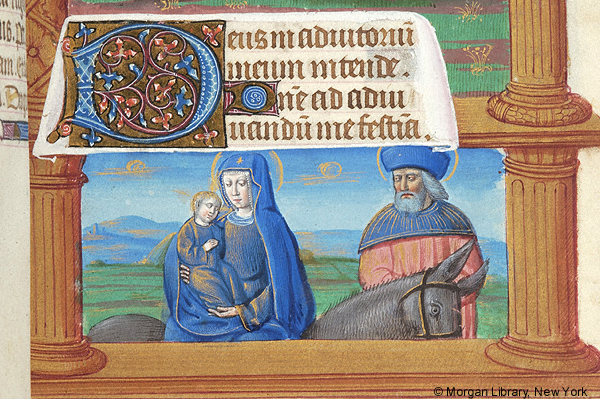 Deus in adiutoriū
meum intende.
Dn̄e ad adiu
uandū me festīa.
© Morgan Library, New York